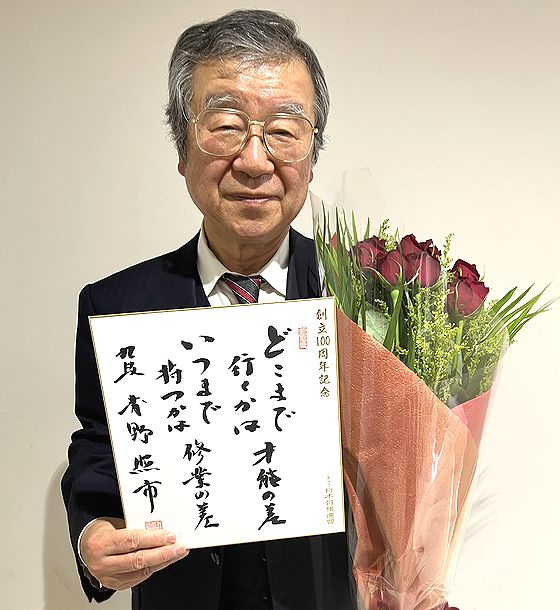 創立100周年記念
どこまで
行くかは
才能の差
いつまで
持つかは
修業の差
九段 青野照市
日本将棋連盟